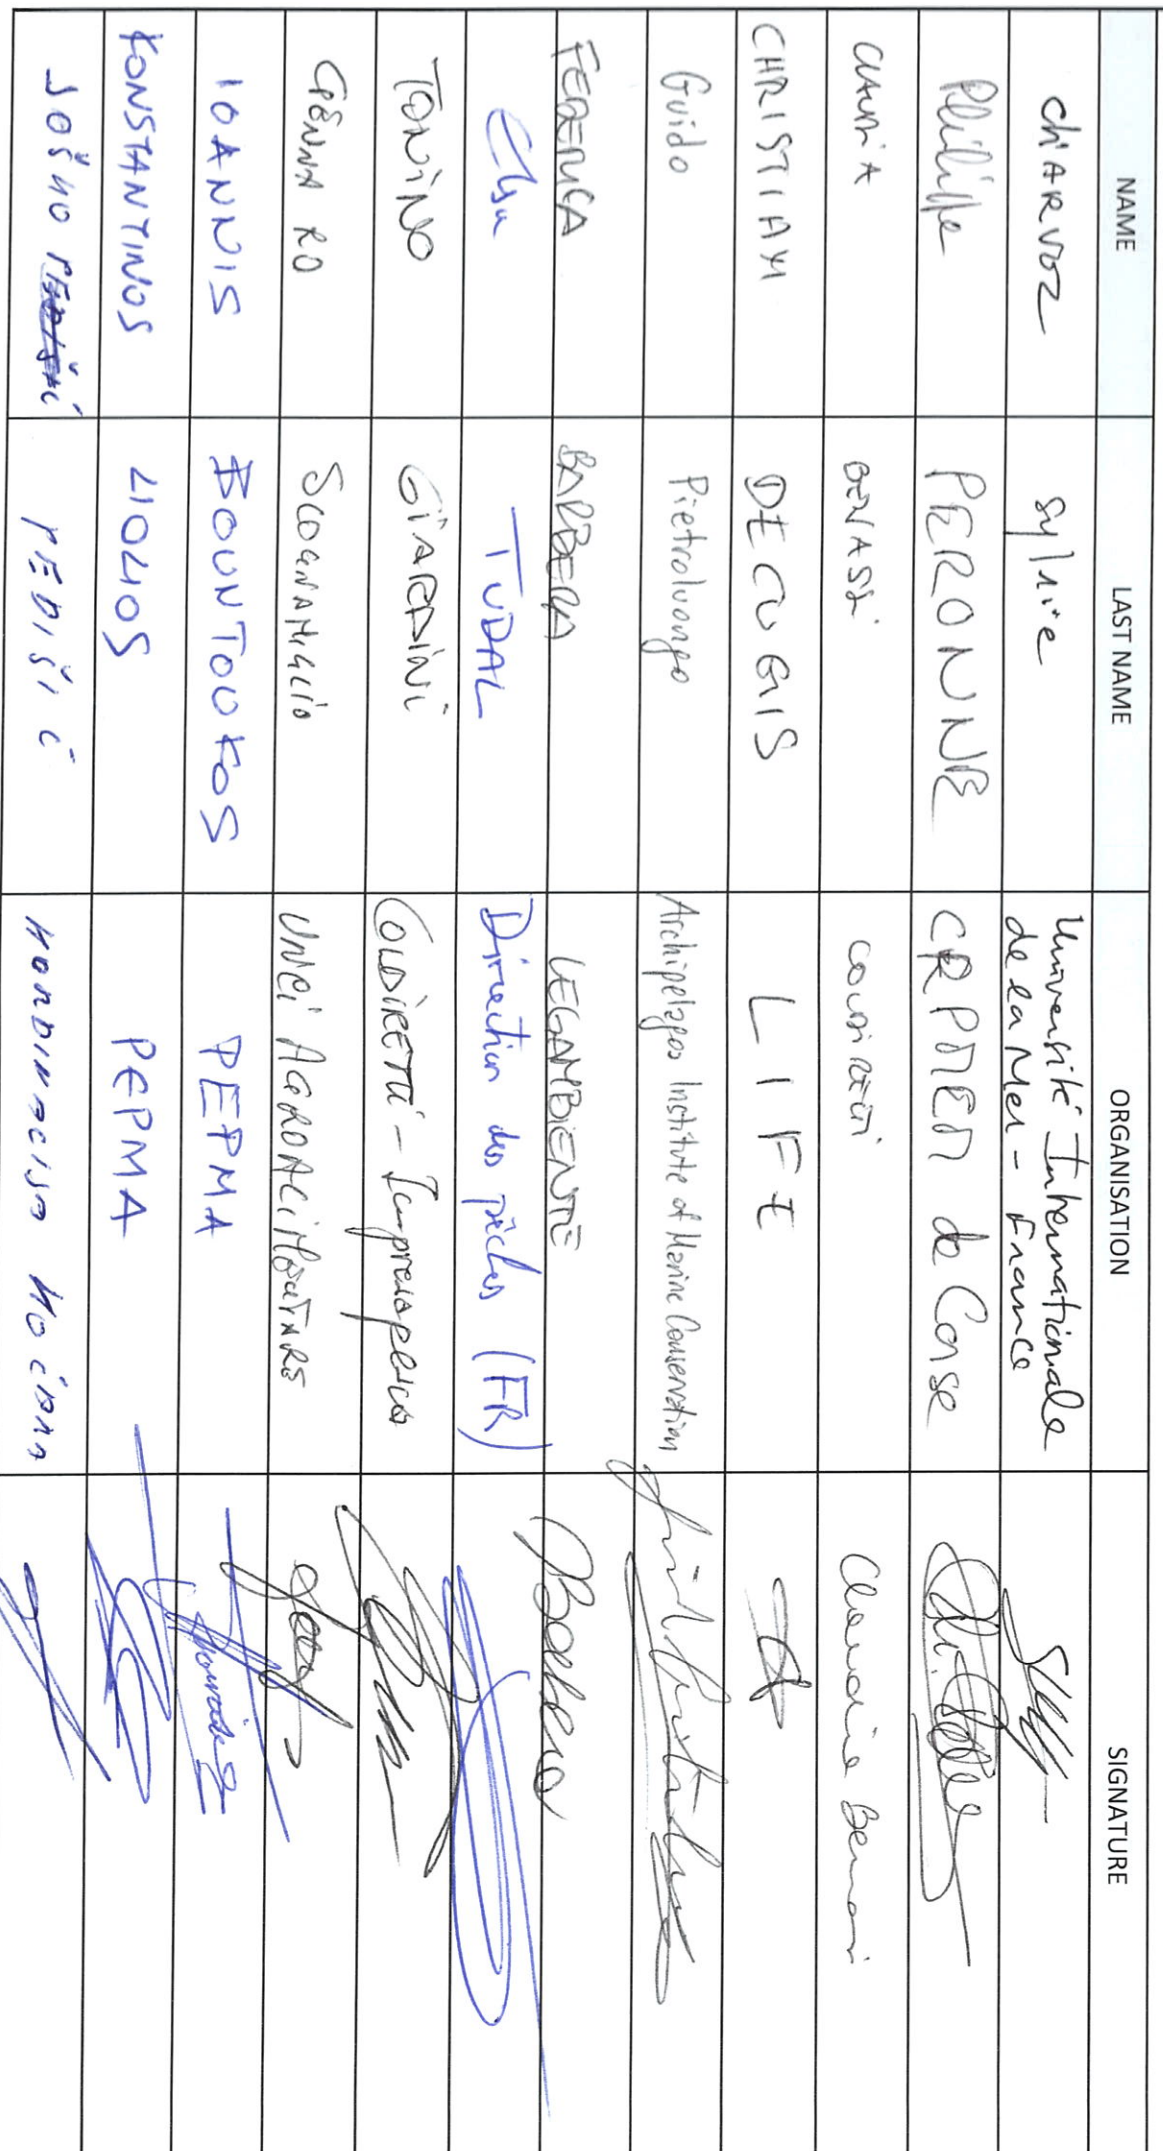 NAME LAST NAME ORGANISATION SIGNATURE
CHARVOZ Sylvie Université Internationale
de la Mer - France
Philippe PERONNE CRPMEM de Corse
CLAUDIA BENASSI COLDIRETTI Claudia Benassi
CHRISTIAN DECUGIS LIFE
Guido Pietroluongo Archipelagos Institute of Marine Conservation
FEDERICA BARBERA LEGAMBIENTE Barbera
Elsa TUDAL Direction des pêches (FR)
TONINO GIARDINI COLDIRETTI - Impresapesca
GENNARO SCOGNAMIGLIO UNCI AGROALIMENTARE
IOANNIS BOUNTOUKOS PEPMA
KONSTANTINOS LIOLIOS PEPMA
JOŠKO PEDIŠIĆ